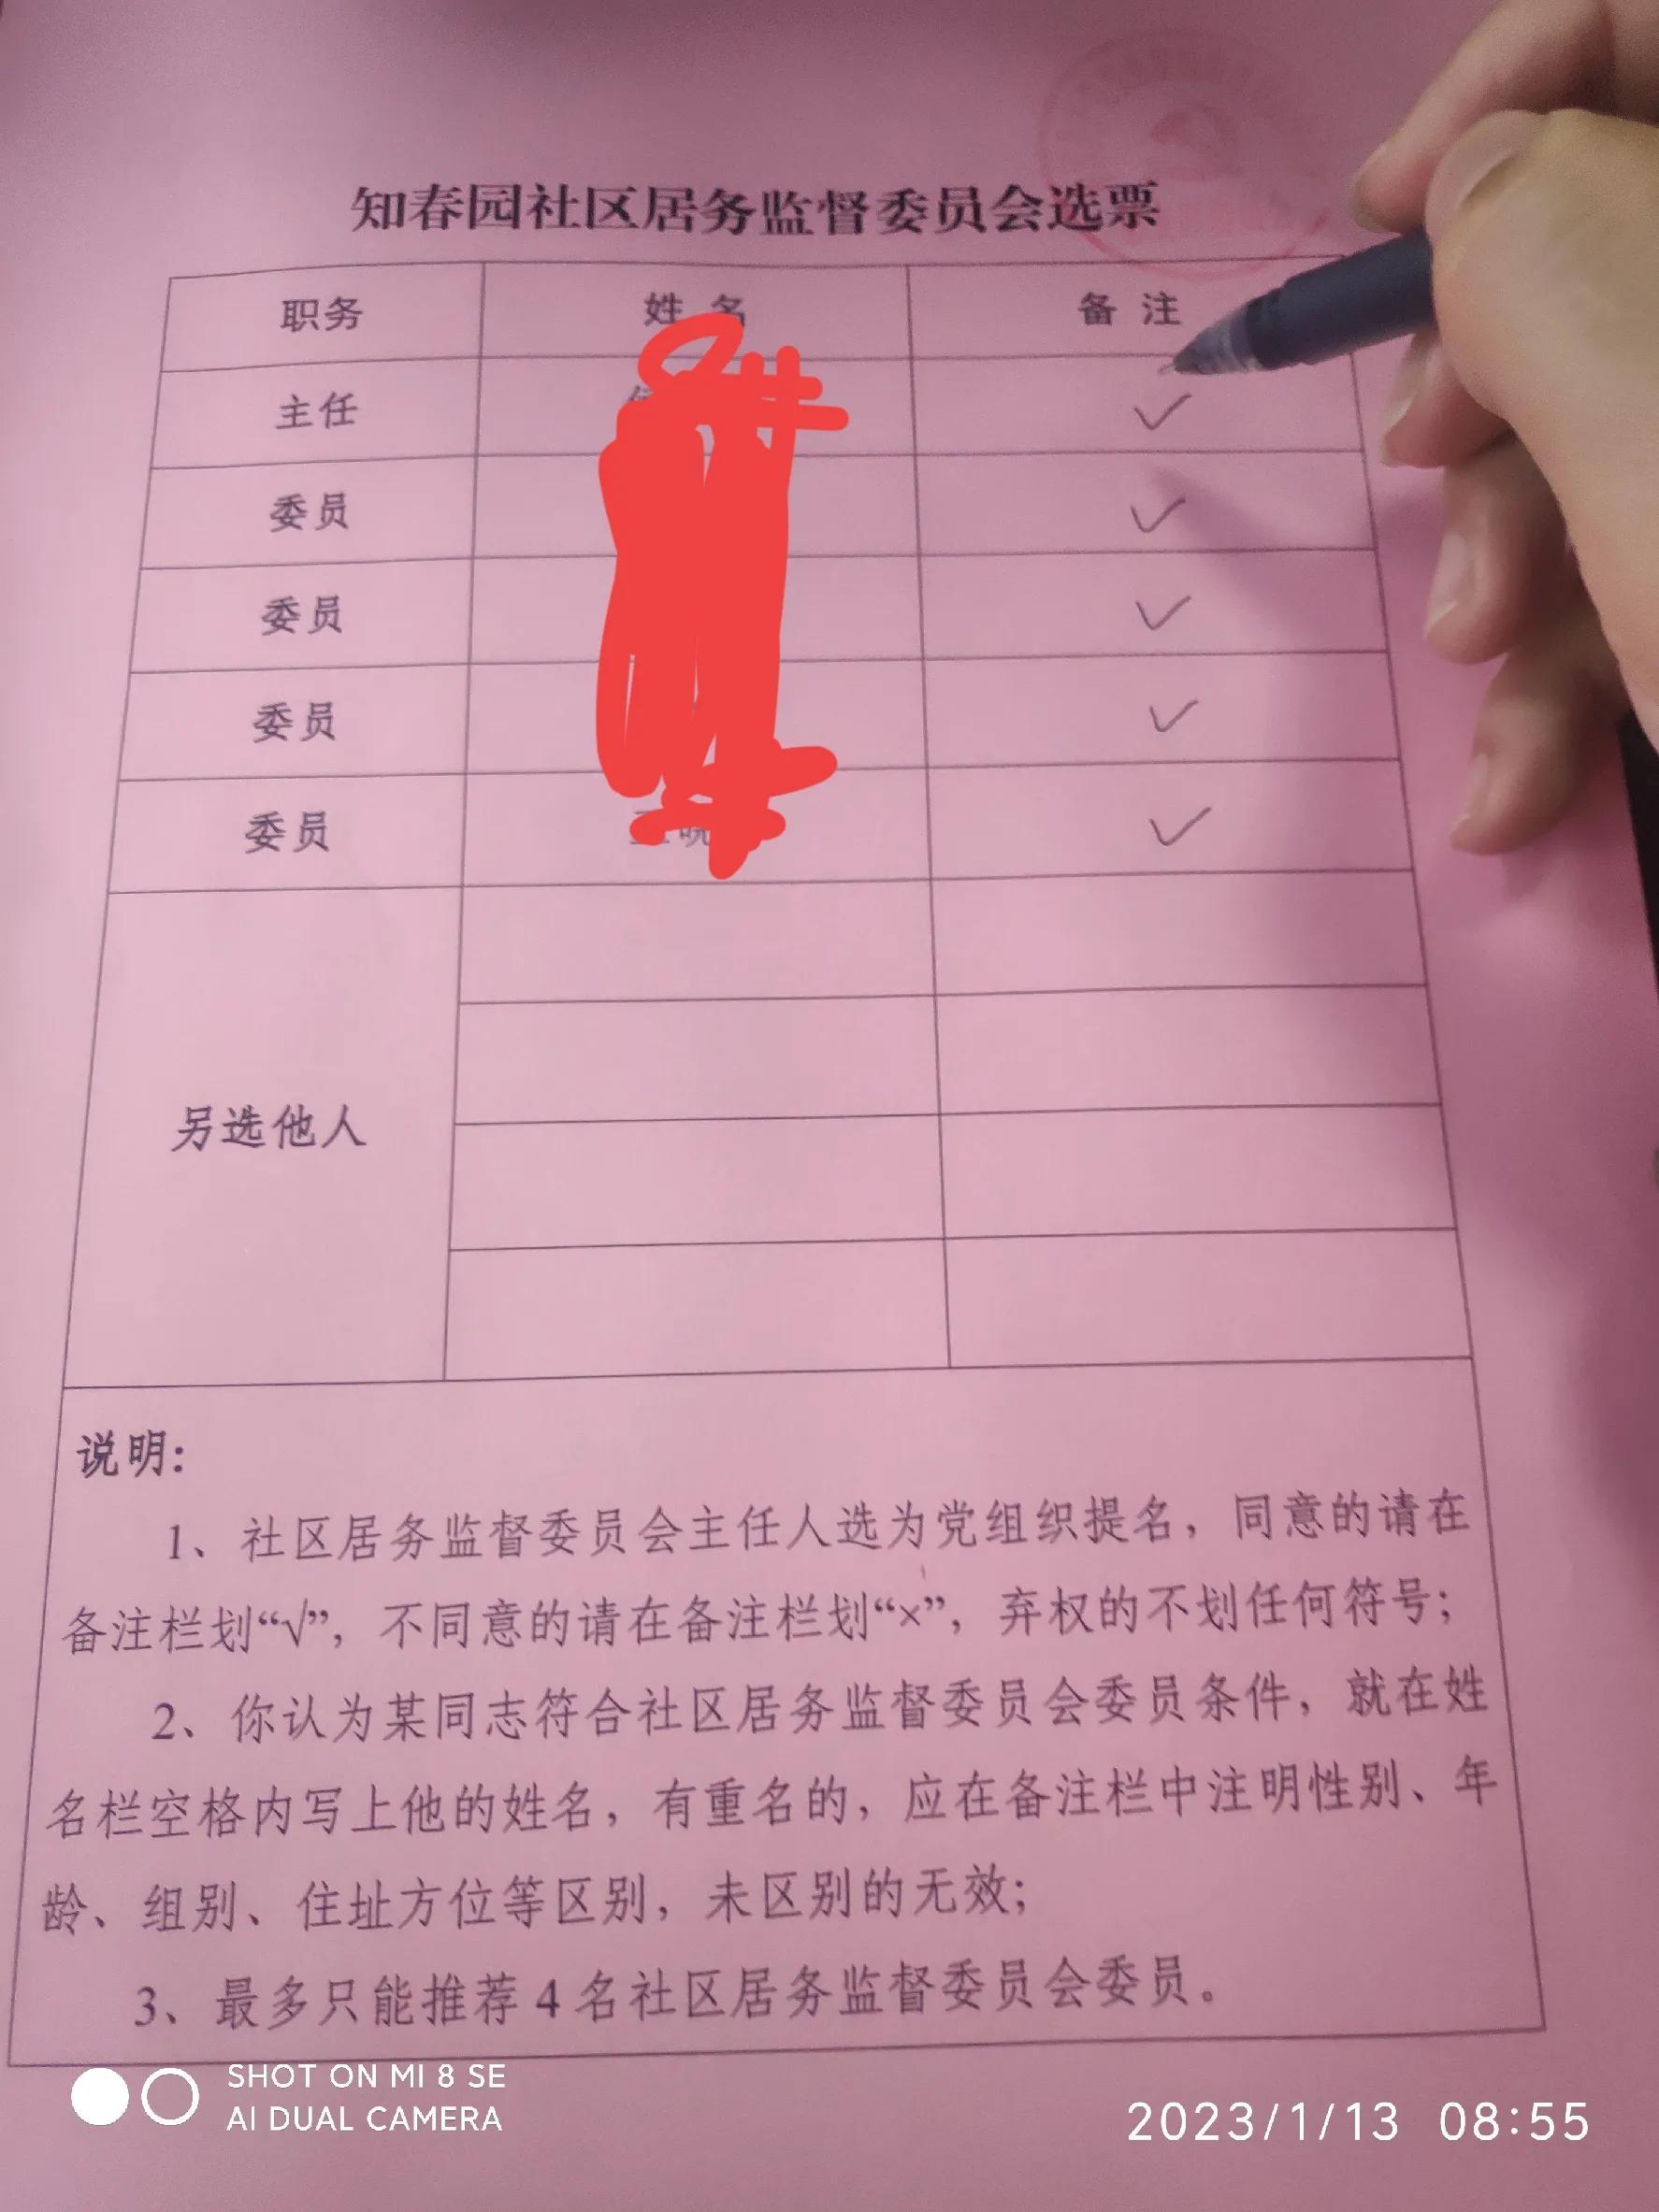 知春园社区居务监督委员会选票
职务 姓 名 备 注
主任 ✓
委员 ✓
委员 ✓
委员 ✓
委员 ✓
另选他人
说明：
1、社区居务监督委员会主任人选为党组织提名，同意的请在
备注栏划“√”，不同意的请在备注栏划“×”，弃权的不划任何符号；
2、你认为某同志符合社区居务监督委员会委员条件，就在姓
名栏空格内写上他的姓名，有重名的，应在备注栏中注明性别、年
龄、组别、住址方位等区别，未区别的无效；
3、最多只能推荐 4 名社区居务监督委员会委员。
SHOT ON MI 8 SE
AI DUAL CAMERA
2023/1/13 08:55